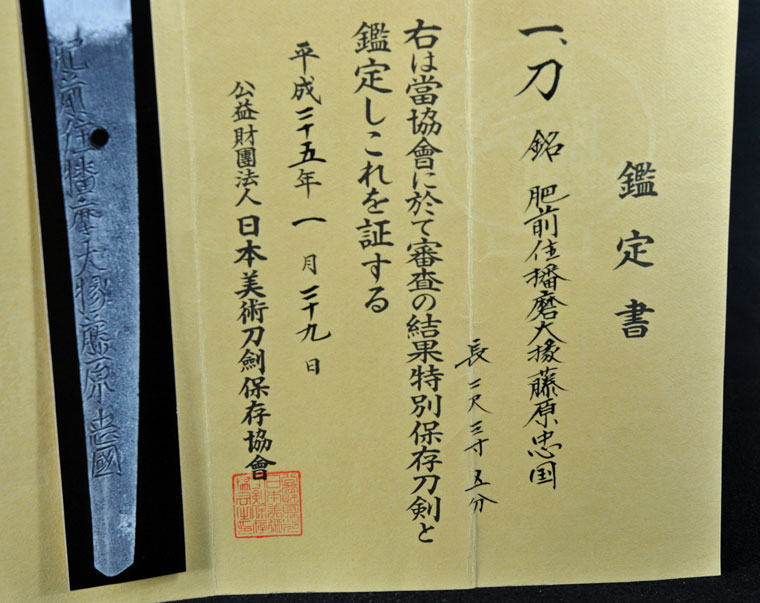 鑑定書
一、刀 銘 肥前住播磨大掾藤原忠国
長二尺三寸五分
右は當協會に於て審査の結果特別保存刀剣と
鑑定しこれを証する
平成二十五年一月二十九日
公益財團法人日本美術刀劍保存協會
肥前住播磨大掾藤原忠國